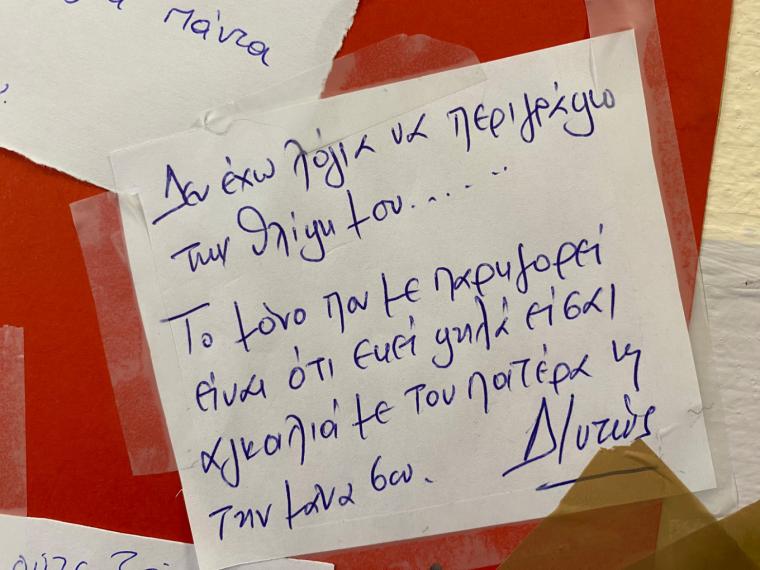 πάντα
Δεν έχω λόγια να περιγράψω
την θλίψη μου......
Το μόνο που με παρηγορεί
είναι ότι εκεί ψηλά είσαι
αγκαλιά με τον πατέρα κ
την μάνα σου.
Δ/ντης